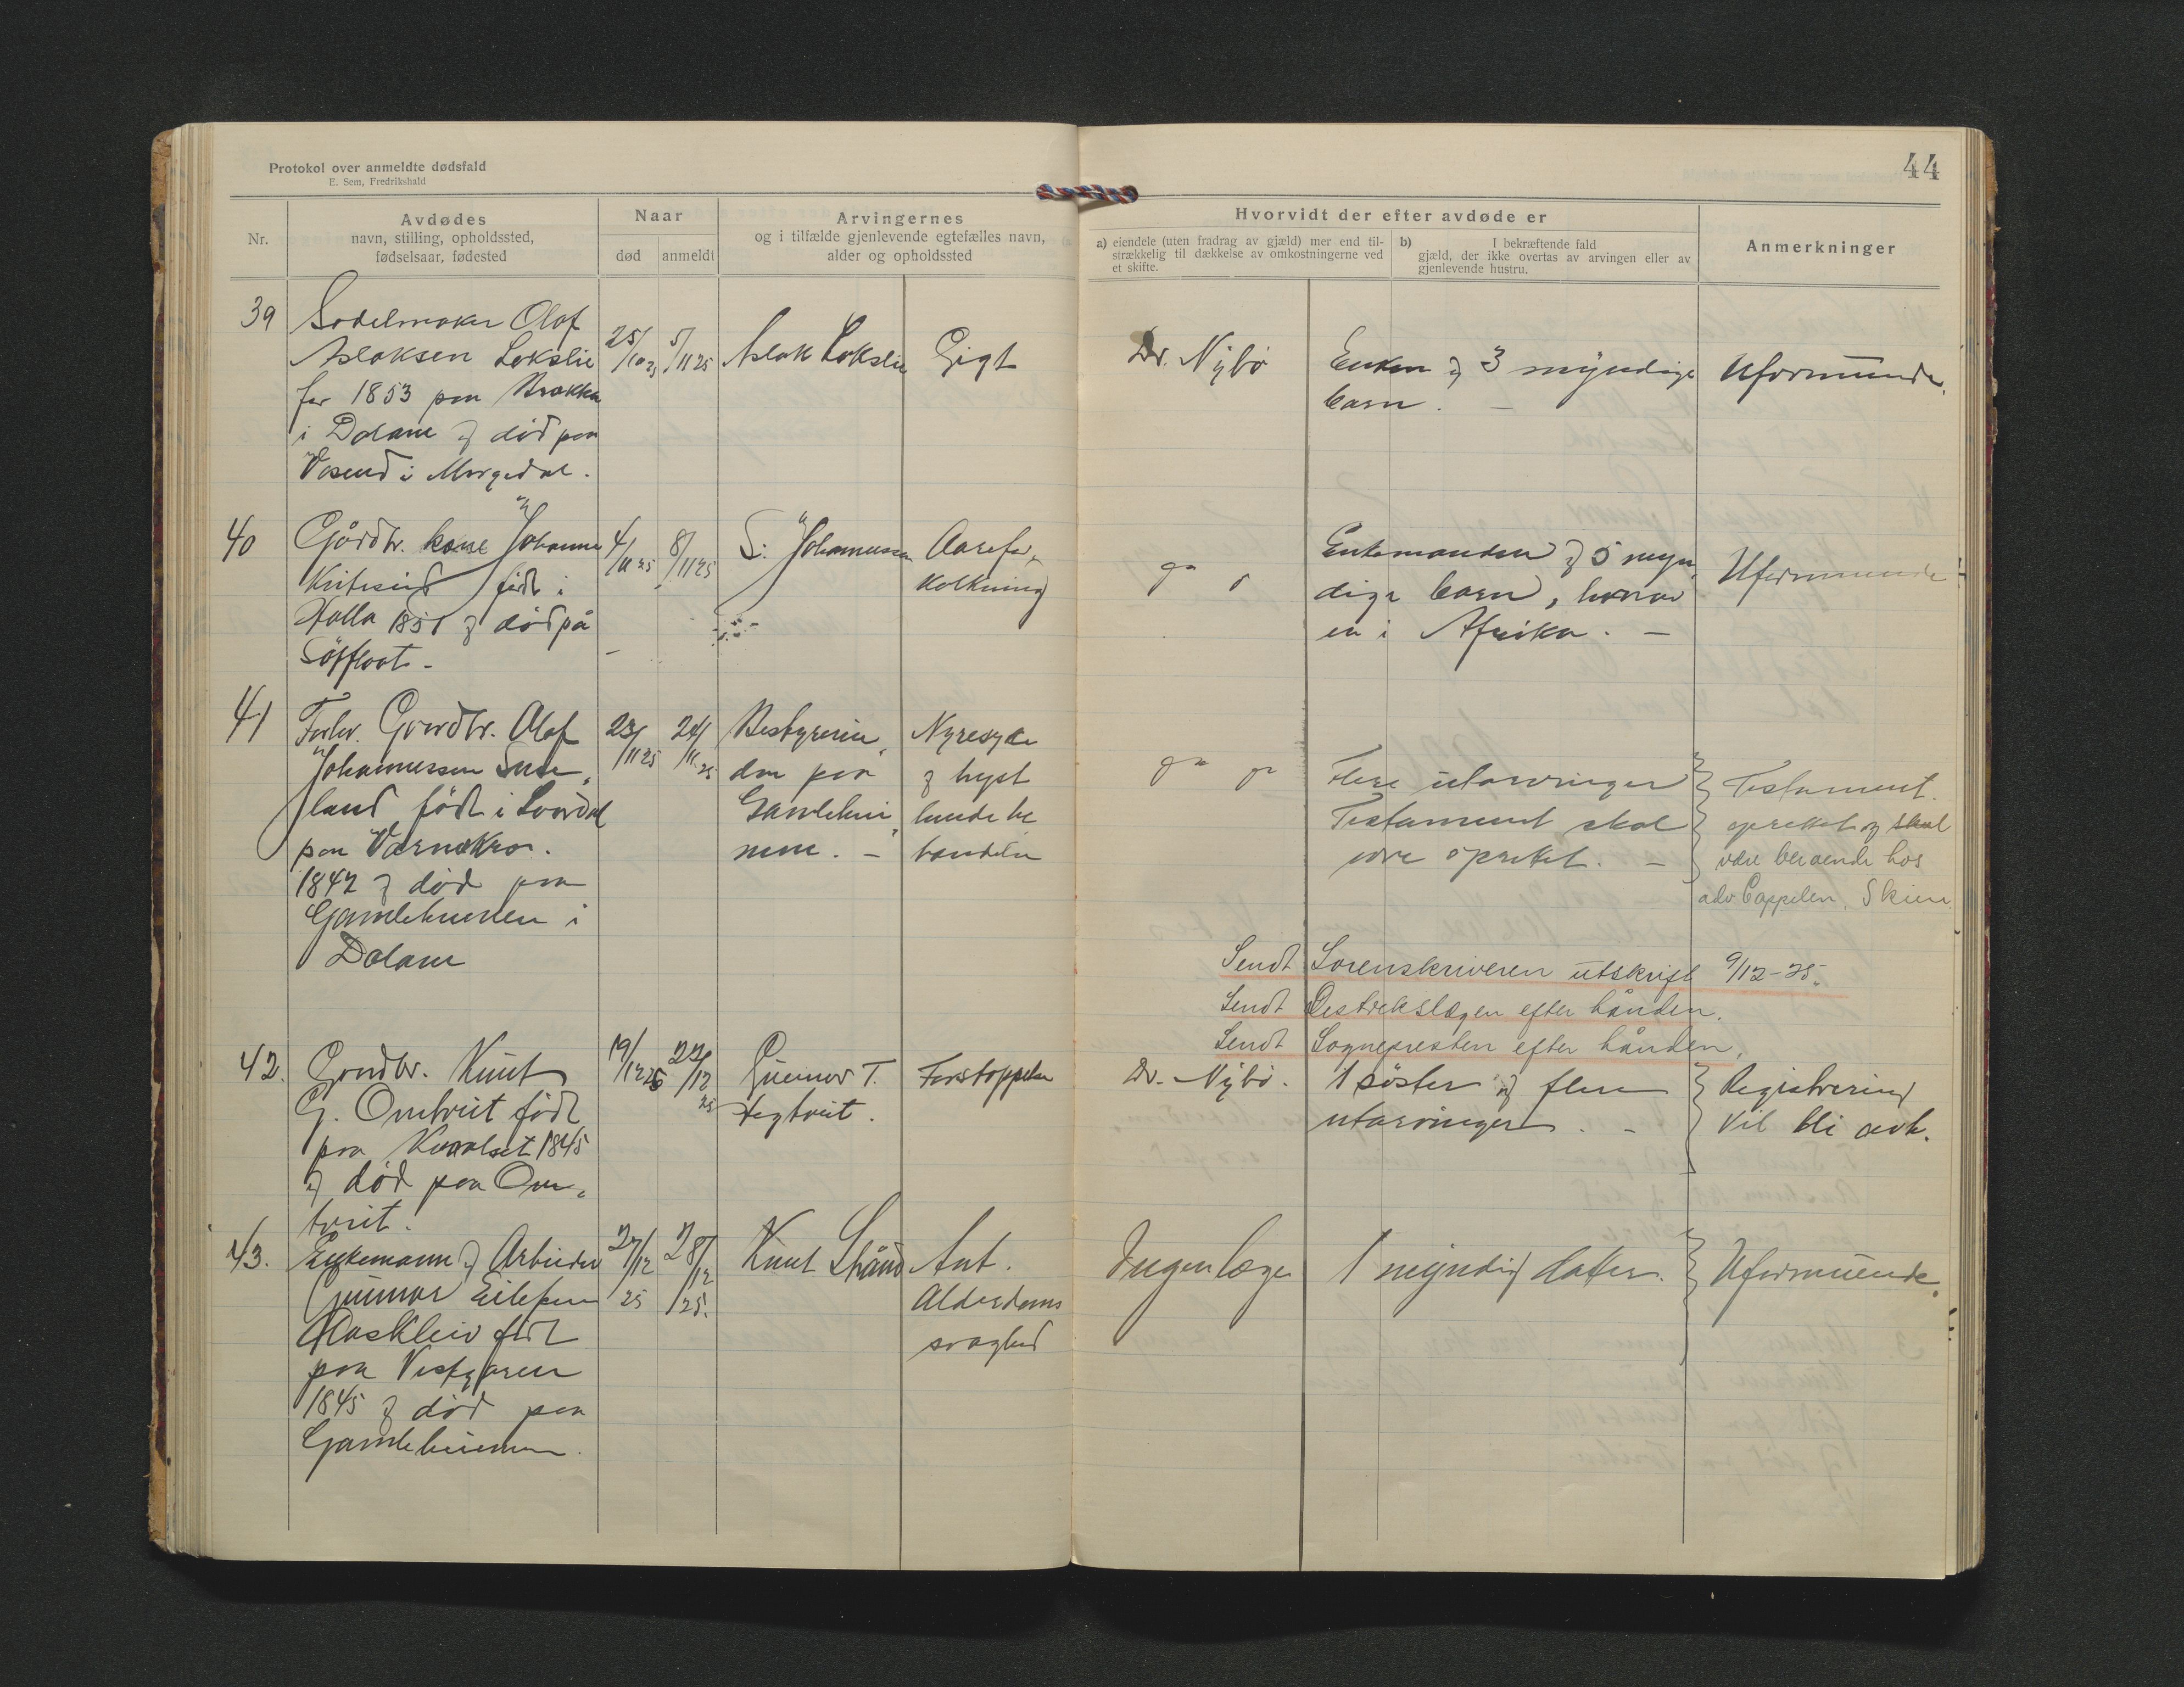 Protokol over anmeldte dødsfald
E. Sem, Fredrikshald
44
Nr.
Avdødes
navn, stilling, opholdssted,
fødselsaar, fødested
Naar
død
anmeldt
Arvingernes
og i tilfælde gjenlevende egtefælles navn,
alder og opholdssted
Hvorvidt der efter avdøde er
a) eiendele (uten fradrag av gjæld) mer end til-
strækkelig til dækkelse av omkostningerne ved
et skifte.
b) I bekræftende fald
gjæld, der ikke overtas av arvingen eller av
gjenlevende hustru.
Anmerkninger
39
Sadelmaker Olaf
Aslaksen Lokslie
før 1853 paa Brokka
i Dalane og död paa
Vasend i Morgedal.
25/10 25
5/11 25
Aslak Lokslie
Gigt
Dr. Nybö
Enken og 3 myndige
barn. -
Uformuende.
40
Gårdbr. kone Johanne
födt i
Holla 1851 og död på
4/11 25
8/11 25
S. Johannessen
Aarefor,
kolkning
Enkemanden og 5 myn,
dige barn, hvorav
en i Afrika. -
Uformuende
41
Forhv. Gaardbr. Olaf
Johannessen
land födt i Lårdal
paa
1842 og död paa
Gamlehimen i
Dalane
23/11 25
24/11 25
Bestyrerin,
den paa
Gamlehei,
mene. -
Nyresyke
og bryst
Flere utarvinger
Testament skal
være oprettet. -
Testament.
oprettet og skal
være beroende hos
adv. Cappelen, Skien
Sendt Sorenskriveren utskrift 9/12-25.
Sendt Destriktslægen efter hånden.
Sendt Sognepresten efter hånden.
42.
Gaardbr. Knut
G. Omtveit födt
paa 1845
og död paa Om,
tveit.
19/12 25
22/12 25
Gunnar T.
Hegtveit.
Forstoppelse
Dr. Nybö.
1 söster og flere
utarvinger. -
Registrering
vil bli avh.
43.
Enkemann og Arbeider
Gunnar Eilefsen
födt
paa Vestgaren
1845 og död paa
Gamleheimen.
27/12 25
28/12 25.
Knut Strånd
Ant.
Alderdoms
svaghed
Ingen læge
1 myndig datter.
Uformuende.